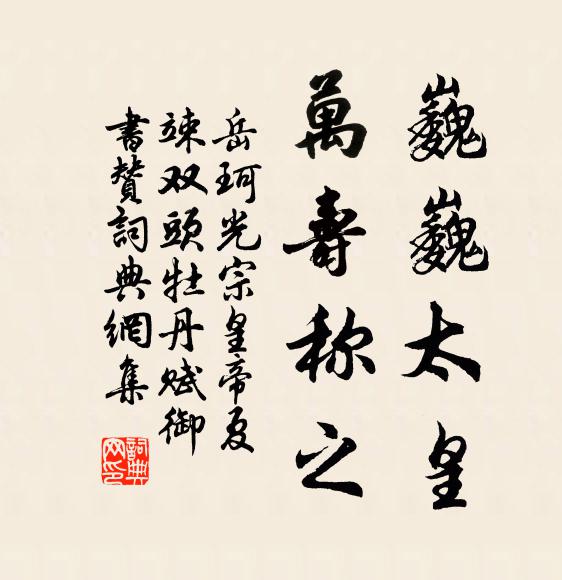 巍巍太皇
萬壽称之
岳珂光宗皇帝夏
竦双頭牡丹赋御
書贊詞典網集
詞典
网印